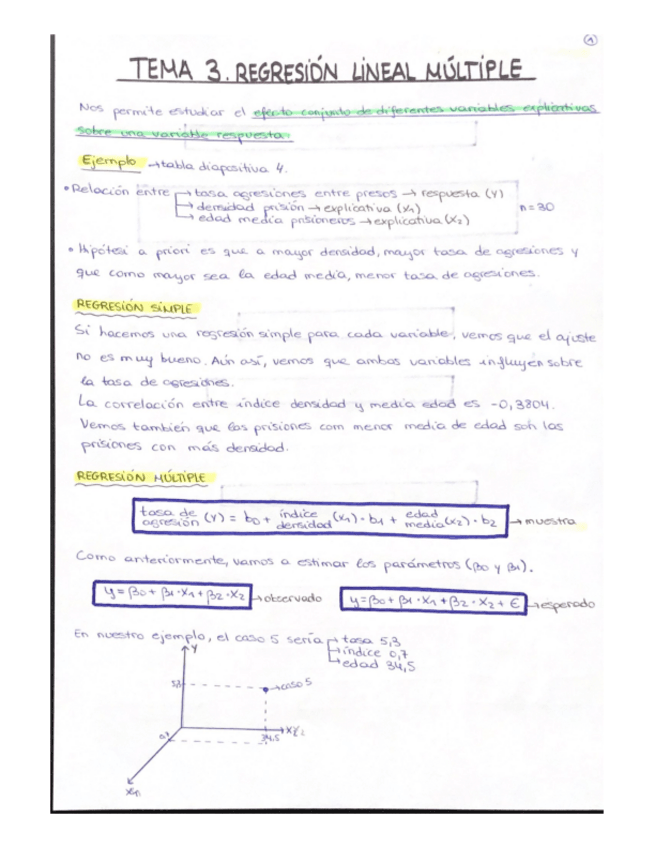 1
TEMA 3. REGRESIÓN LINEAL MÚLTIPLE
Nos permite estudiar el efecto conjunto de diferentes variables explicativas
sobre una variable respuesta.
Ejemplo → tabla diapositiva 4.
• Relación entre → tasa agresiones entre presos → respuesta (Y)
→ densidad prisión → explicativa (X1) n = 30
→ edad media prisioneros → explicativa (X2)
• Hipótesi a priori es que a mayor densidad, mayor tasa de agresiones y
que como mayor sea la edad media, menor tasa de agresiones.
REGRESIÓN SIMPLE
Si hacemos una regresión simple para cada variable, vemos que el ajuste
no es muy bueno. Aún así, vemos que ambas variables influyen sobre
la tasa de agresiones.
La correlación entre índice densidad y media edad es -0,3804.
Vemos también que las prisiones com menor media de edad soh las
prisiones con más densidad.
REGRESIÓN MÚLTIPLE
tasa de agresión (Y) = b0 + índice densidad (X1) · b1 + edad media (X2) · b2 → muestra
Como anteriormente, vamos a estimar los parámetros (β0 y β1).
y = β0 + β1 · X1 + β2 · X2 → observado y = β0 + β1 · X1 + β2 · X2 + E → esperado
En nuestro ejemplo, el caso 5 sería → tasa 5,3
→ índice 0,7
→ edad 34,5
Y
5,3 → caso 5
X2
0,7 34,5
X1